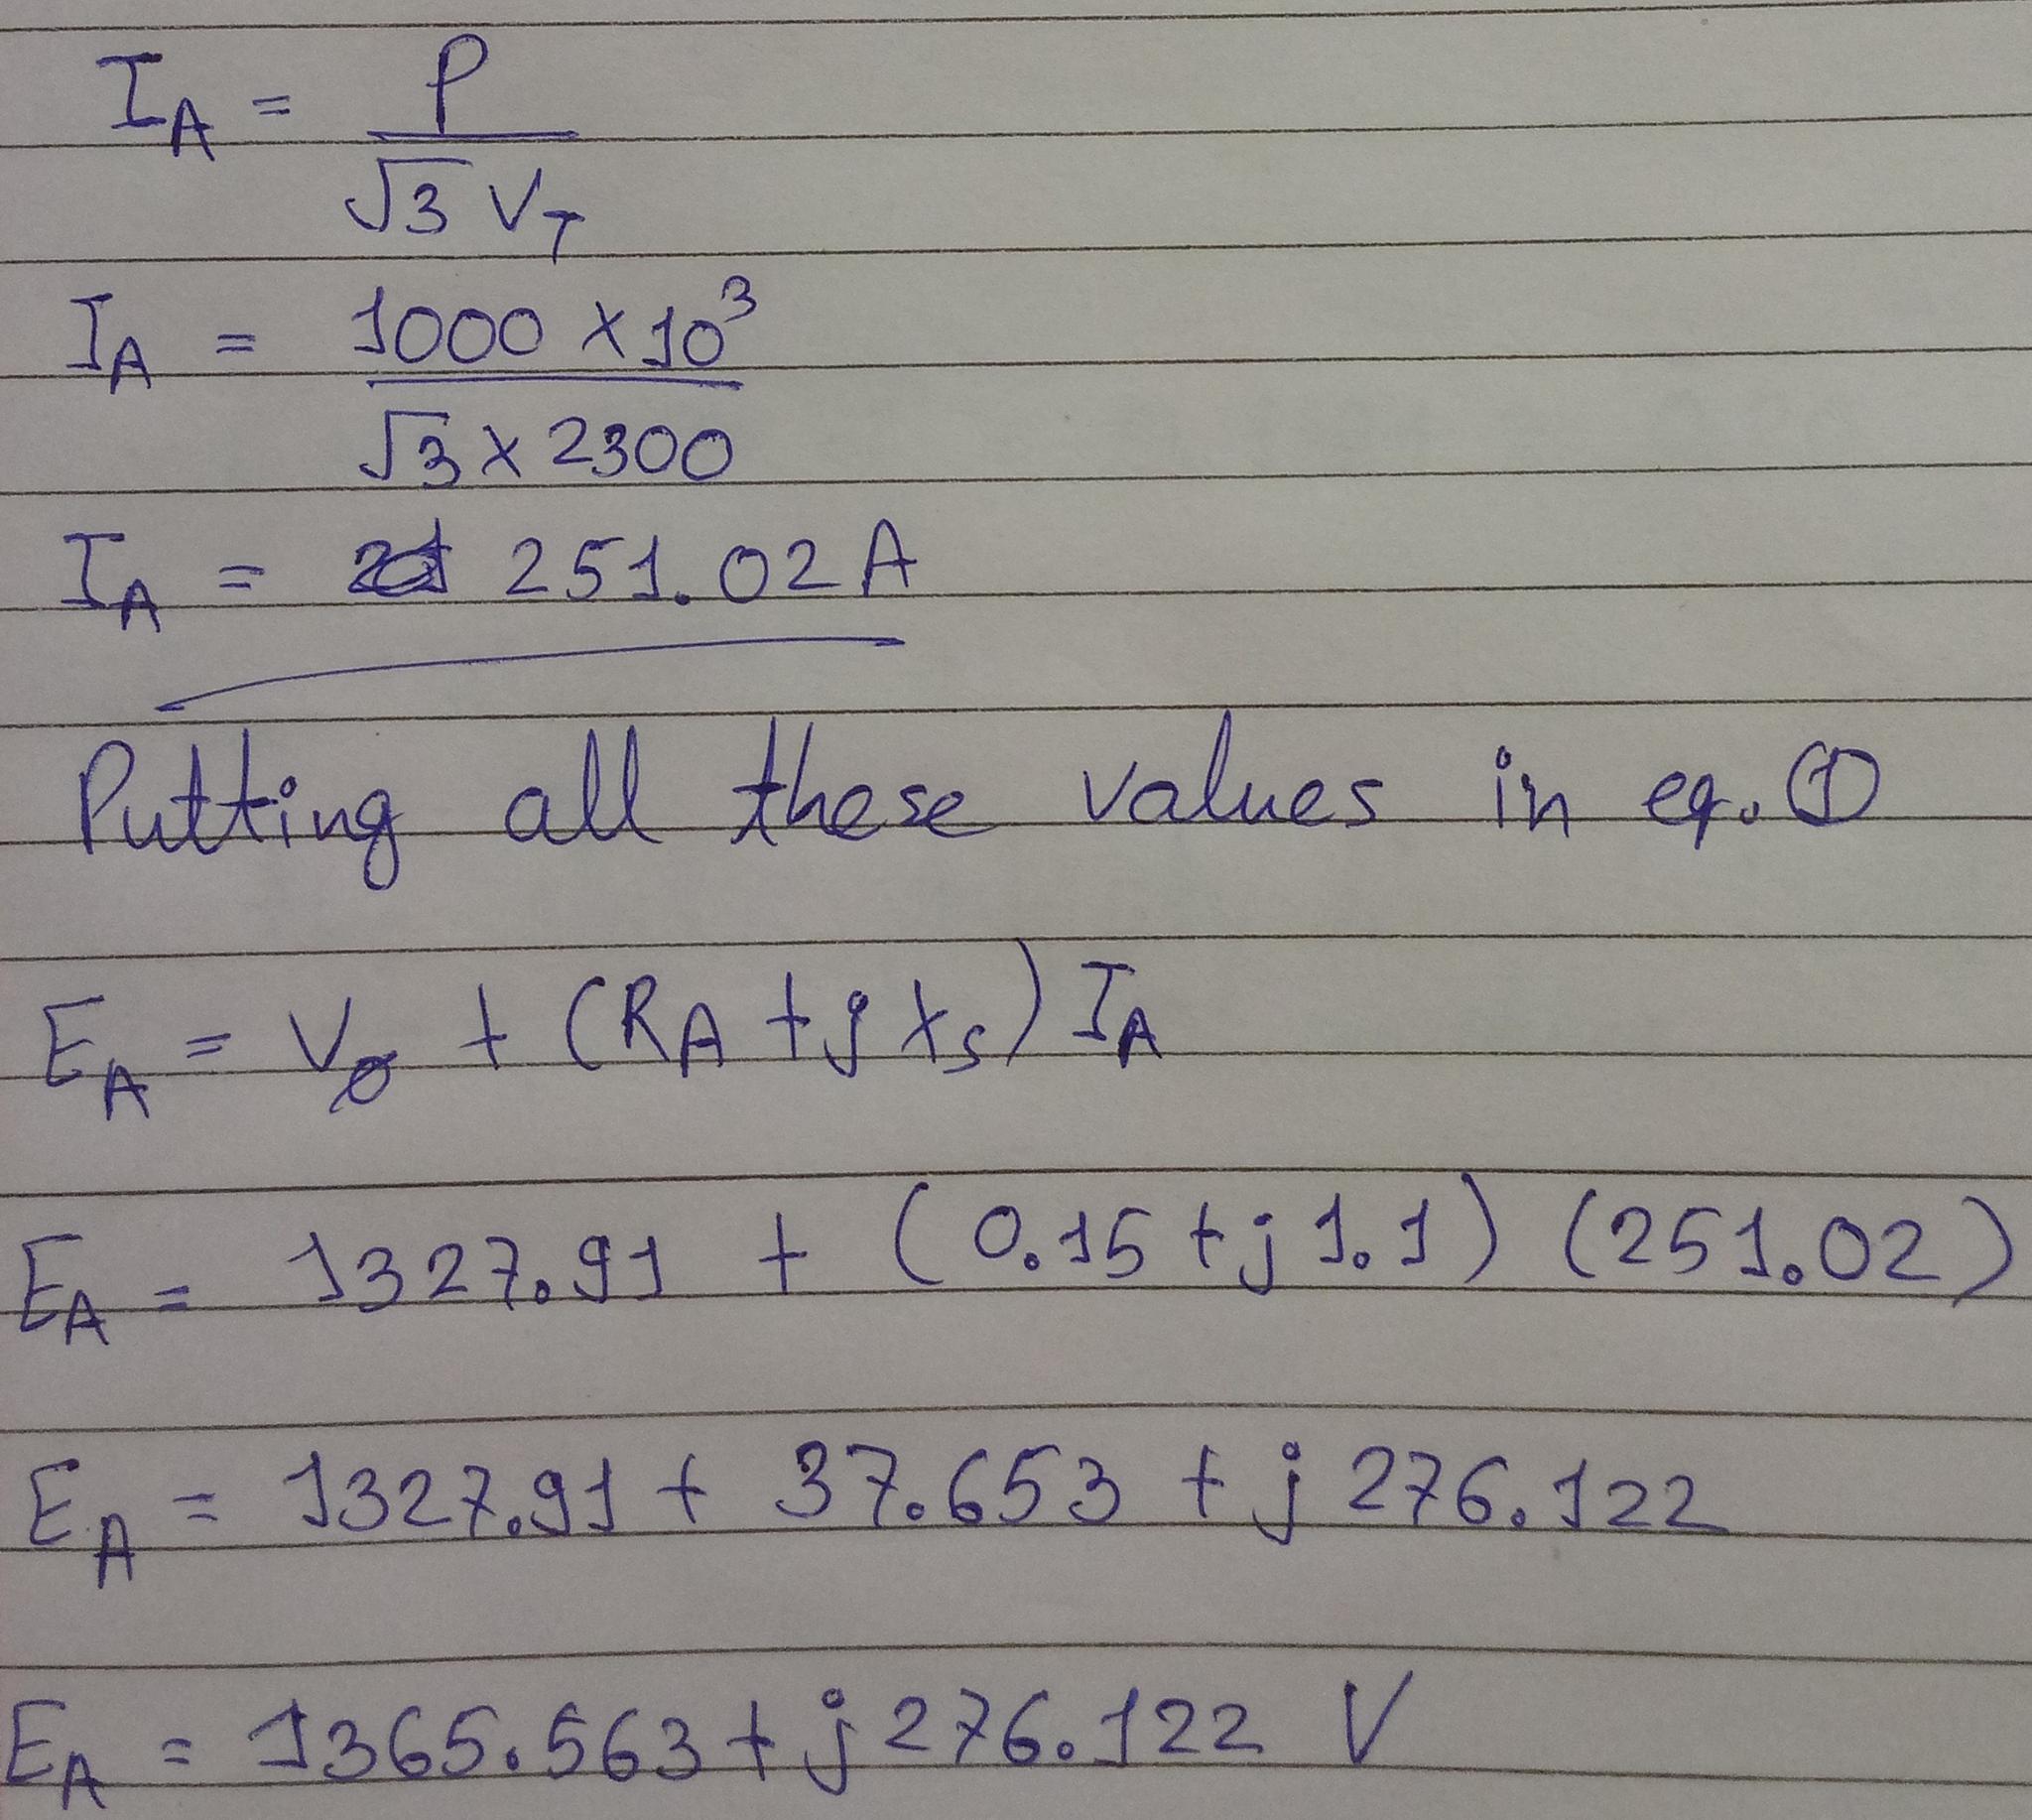 I_A = P / √3 V_T
I_A = 1000 × 10³ / √3 × 2300
I_A = 251.02 A
Putting all these values in eq. ①
E_A = V_ø + (R_A + j X_s) I_A
E_A = 1327.91 + (0.15 + j 1.1) (251.02)
E_A = 1327.91 + 37.653 + j 276.122
E_A = 1365.563 + j 276.122 V